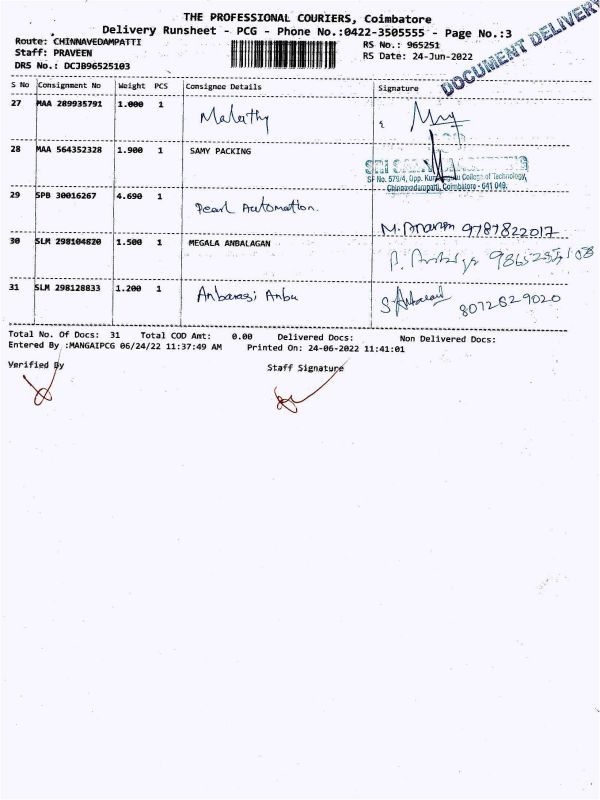 THE PROFESSIONAL COURIERS, Coimbatore
Delivery Runsheet - PCG - Phone No.:0422-3505555 - Page No.:3
Route: CHINNAVEDAMPATTI
RS No.: 965251
Staff: PRAVEEN
RS Date: 24-Jun-2022
DRS No.: DCJB96525103
DOCUMENT DELIVERY
S No Consignment No Weight PCS Consignee Details Signature
27 MAA 289935791 1.000 1 Malathy
28 MAA 564352328 1.900 1 SAMY PACKING
SF No. 579/4, Opp. College of Technology,
Chinnavedampatti, Coimbatore - 641 049.
29 SPB 30016267 4.690 1 Pearl Automation. 9787822017
30 SLM 298104820 1.500 1 MEGALA ANBALAGAN
31 SLM 298128833 1.200 1 Anbarasi Anbu 8072829020
Total No. Of Docs: 31 Total COD Amt: 0.00 Delivered Docs: Non Delivered Docs:
Entered By :MANGAIPCG 06/24/22 11:37:49 AM Printed On: 24-06-2022 11:41:01
Verified By Staff Signature